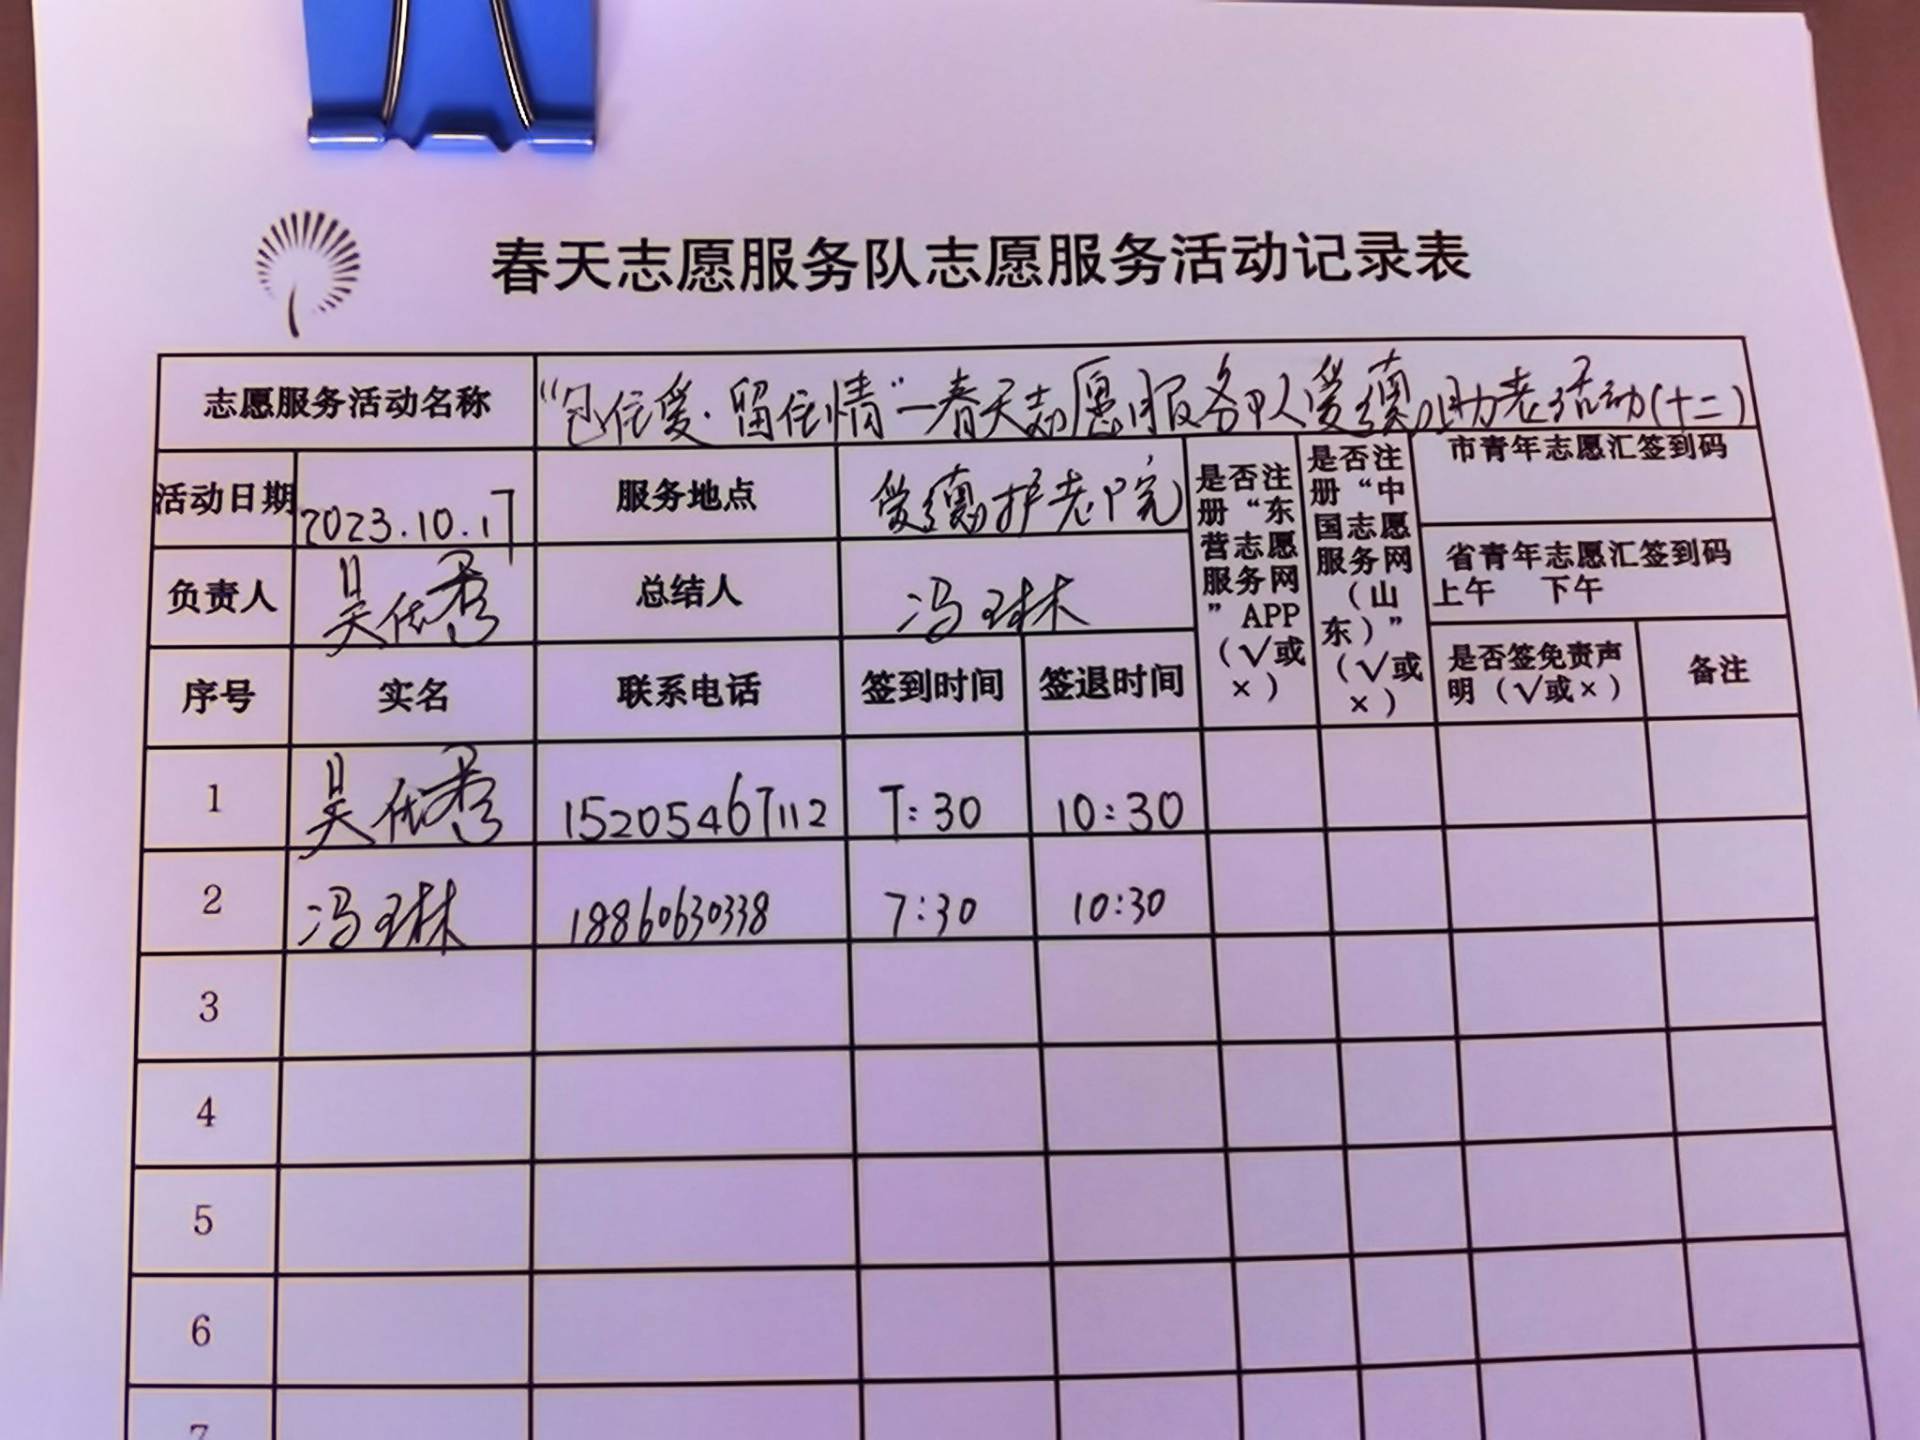 春天志愿服务队志愿服务活动记录表
志愿服务活动名称 “包住爱·留住情”—春天志愿服务队爱德助老活动(十二)
活动日期 2023.10.17 服务地点 爱德护老院
是否注册“东营志愿服务网”APP（√或×）
是否注册“中国志愿服务网（山东）”（√或×）
市青年志愿汇签到码
省青年志愿汇签到码
上午 下午
负责人 吴依秀 总结人 冯琳
序号 实名 联系电话 签到时间 签退时间 是否签免责声明（√或×） 备注
1 吴依秀 15205467112 7:30 10:30
2 冯琳 18860630338 7:30 10:30
3
4
5
6
7